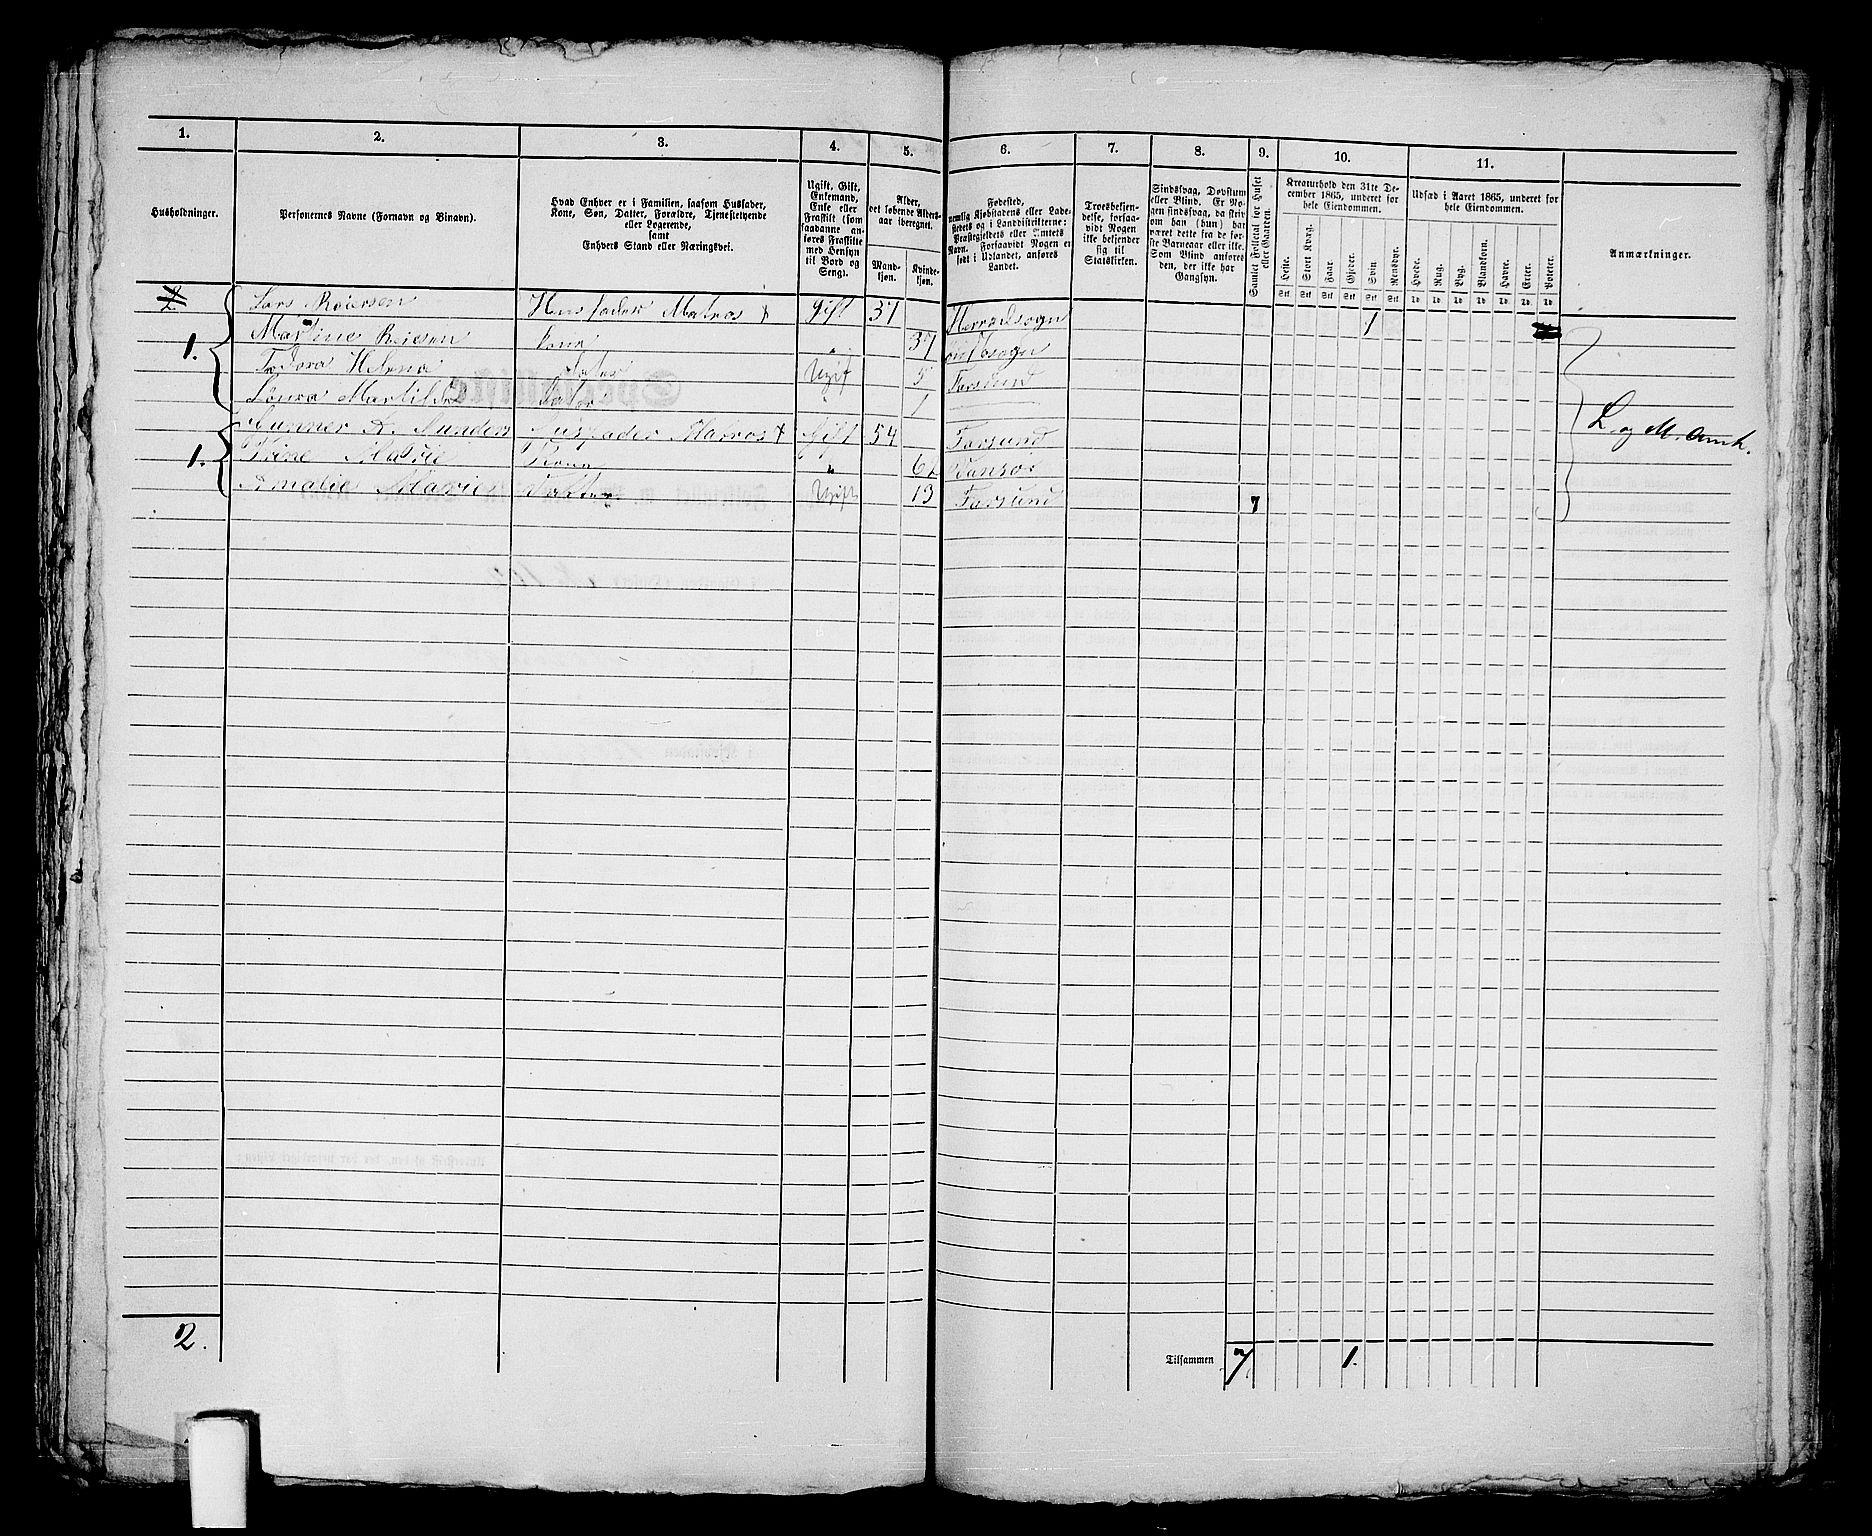 1. 2. 3. 4. 5. 6. 7. 8. 9. 10. 11.
Husholdninger.
Personernes Navne (Fornavn og Binavn).
Hvad Enhver er i Familien, saasom Husfader,
Kone, Søn, Datter, Forældre, Tjenestetyende
eller Logerende,
samt
Enhvers Stand eller Næringsvei.
Ugift, Gift,
Enkemand,
Enke eller
Fraskilt (som
saadanne an-
føres Fraskilte
med Hensyn
til Bord og
Seng).
Alder,
det løbende Alders-
aar iberegnet.
Mand-
kjøn.
Kvinde-
kjøn.
Fødested,
nemlig Kjøbstadens eller Lade-
stedets og i Landdistrikterne:
Præstegjeldets eller Amtets
Navn. Forsaavidt Nogen er
født i Udlandet, anføres
Landet.
Troesbekjen-
delse, forsaa-
vidt Nogen
ikke bekjender
sig til
Statskirken.
Sindssvag, Døvstum
eller Blind. Er No-
gen sindssvag, da skriv
om han (hun) har
været dette fra de før-
ste Barneaar eller ikke.
Som Blind anføres
den, der ikke har
Gangsyn.
Samlet Folketal for Huset
eller Gaarden.
Kreaturhold den 31te De-
cember 1865, underet for
hele Eiendommen.
Heste. Stort Kvæg. Faar. Gjeder. Svin. Rensdyr.
Stk Stk Stk Stk Stk Stk
Udsæd i Aaret 1865, underet for
hele Eiendommen.
Hvede. Rug. Byg. Blandkorn. Havre. Erter. Poteter.
Td. Td. Td. Td. Td. Td. Td.
Anmærkninger.
Lars Reiersen Huusfader Matros Gift 37 Herredsogn 1
1. Martine Reiersen kona " 37
Tedora Helena Dater Ugift 5 Farsund
Martilde Dater 1
Gunner Husfader Matros Gift 54 Farsund
1. Trine Marie Kona "
Amalie Marie Datter Ugift 13 Farsund 7
L. og M. Amt.
2. Tilsammen 7 1.